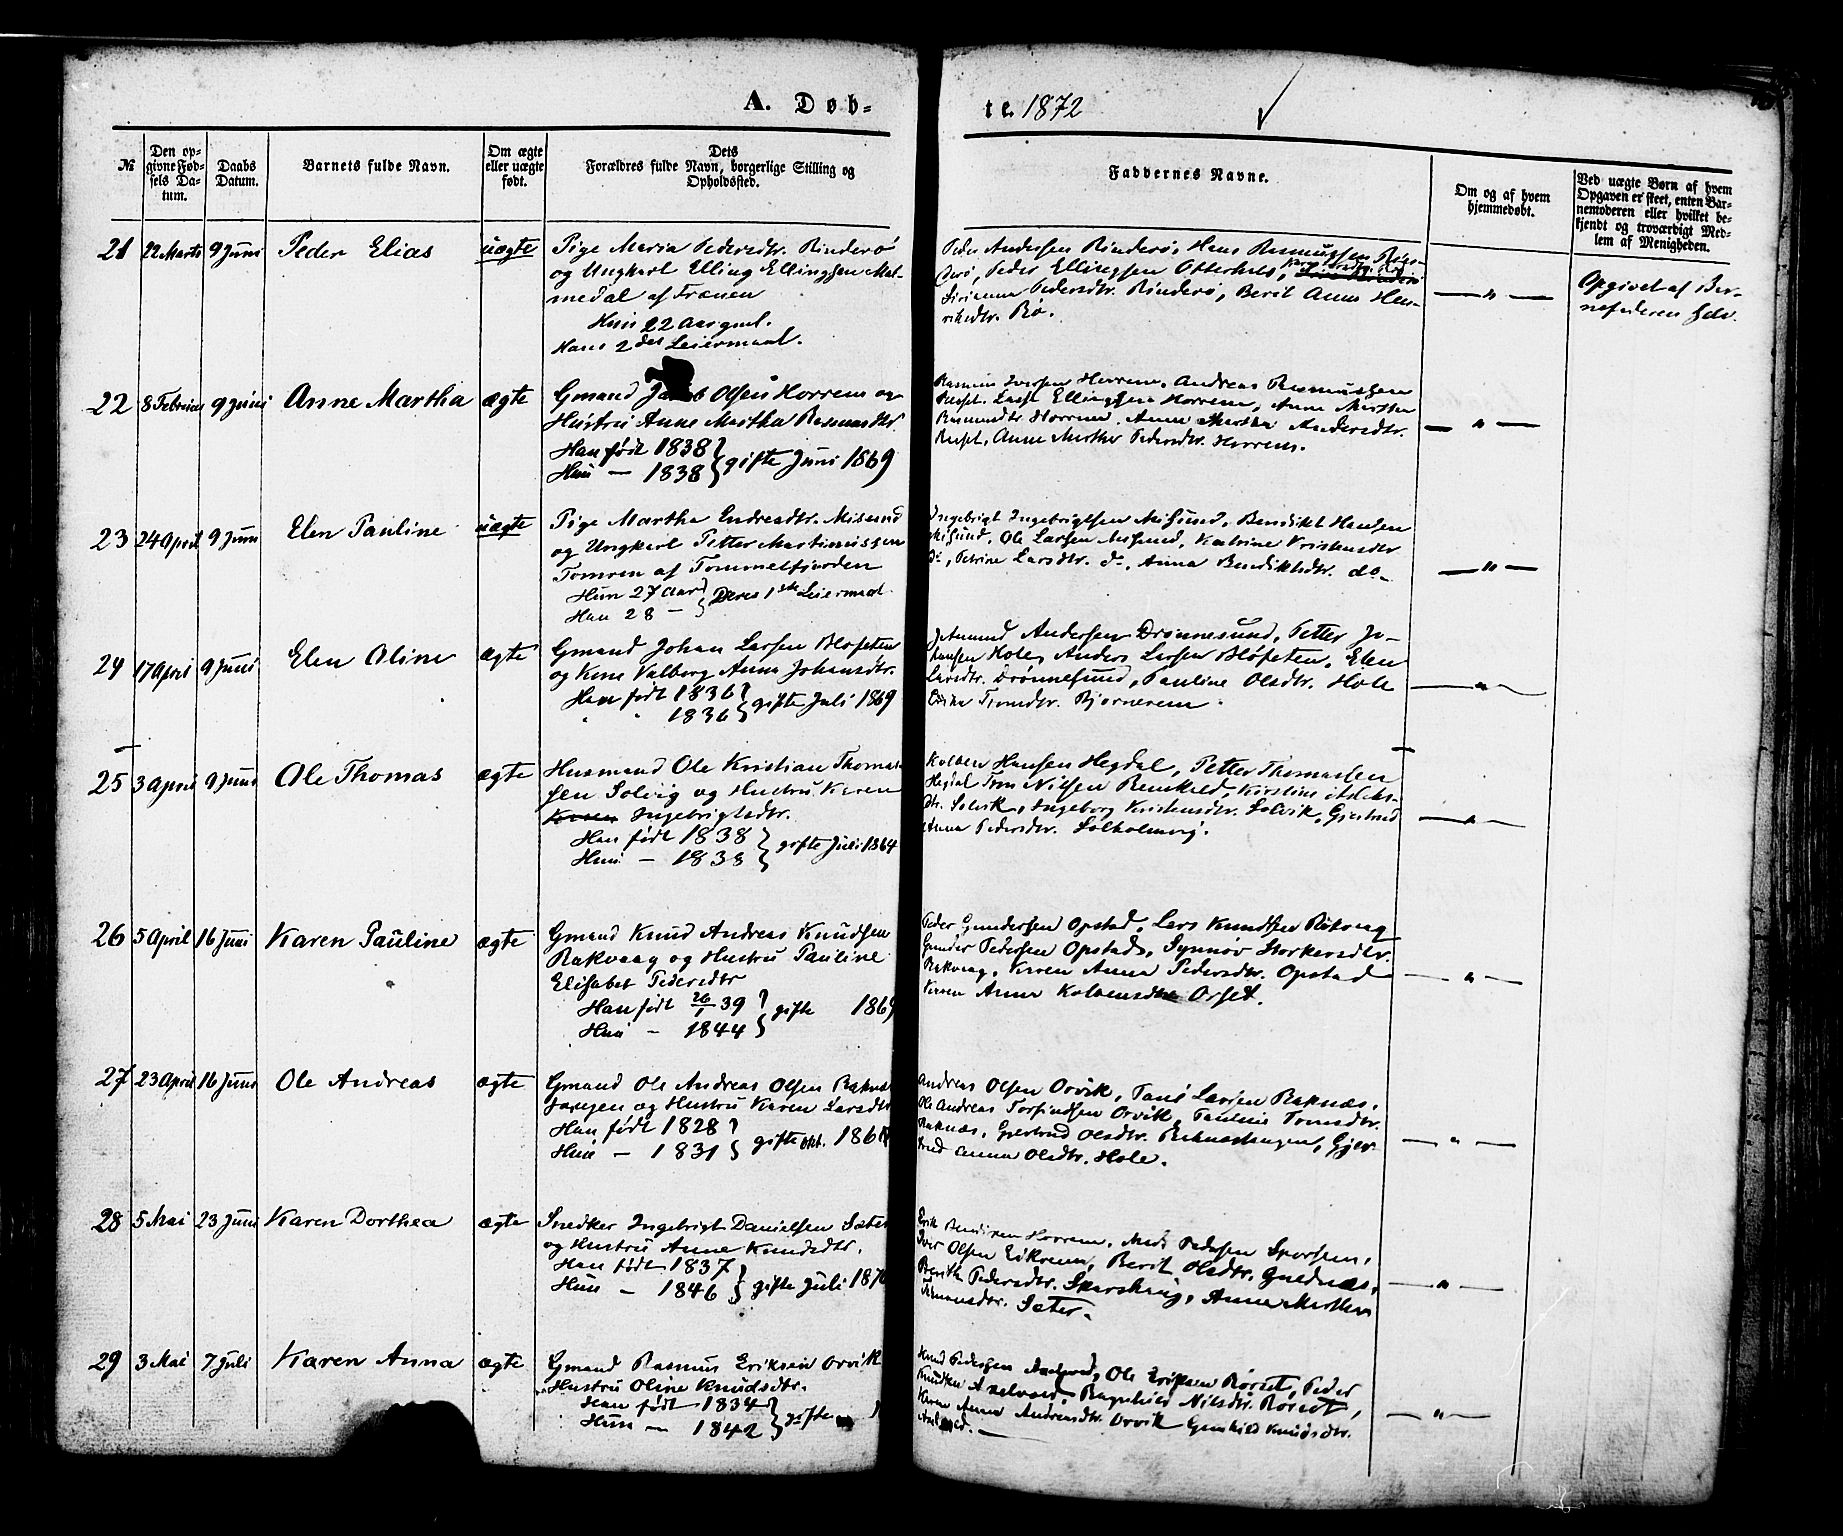 A. Døb-
te. 1872
№
Den op-
givne Fød-
sels Da-
tum.
Daabs
Datum.
Barnets fulde Navn.
Om ægte
eller uægte
født.
Dets
Forældres fulde Navn, borgerlige Stilling og
Opholdssted.
Faddernes Navne.
Om og af hvem
hjemmedøbt.
Ved uægte Børn af hvem
Opgaven er skeet, enten Bar-
nemoderen eller hvilket be-
kjendt og troværdigt Med-
lem af Menigheden.
21 22 Marts 9 Juni Peder Elias uægte
Pige Maria Pedersdtr. Rinderø
og Ungkarl Elling Ellingsen Mal-
medal af Frænen
Hun 22 Aar gml.
Hans 2det Leiermaal.
Peder Andersen Rinderø, Hans Rasmussen
Peder Ellingsen Otterhals,
Pedersdtr. Rinderø, Berit Anna Hen-
riksdtr. Rø.
— " —
Opgivet af Bar-
nefaderen selv.
22 8 Februar 9 Juni Anne Martha ægte
Gmand Jakob Olsen Horrem og
Hustru Anne Martha Rasmusdtr.
Han født 1838
Hun — 1838 } gifte Juni 1869
Rasmus Iversen Horrem, Andreas Rasmussen
Lasse Ellingsen Horrem, Anne Martha
Rasmusdtr Horrem, Anne Martha Andersdtr.
Anne Marthe Pedersdtr. Horrem.
— " —
23 24 April 9 Juni Elen Pauline uægte
Pige Martha Endresdtr. Misund
og Ungkarl Petter Martinussen
Tomren af Tommelfjorden
Hun 27 Aar
Han 28 — } Deres 1ste Leiermaal
Ingebrigt Ingebrigtsen Misund, Bendikt Hansen
Misund, Ole Larsen Misund, Katrine Kristensdtr
do, Petrine Larsdtr. do, Anna Bendiktsdtr. do-
— " —
24 17 April 9 Juni Elen Oline ægte
Gmand Johan Larsen Bløfeten
og Kone Valborg Anna Johansdtr.
Han født 1836
" " 1836 } gifte Juli 1869
Andersen Drønnesund, Petter Jo-
hansen Hole, Anders Larsen Bløfeten, Elen
Larsdtr. Drønnesund, Pauline Olsdtr. Hole
Bjørnerem.
— " —
25 3 April 9 Juni Ole Thomas ægte
Husmand Ole Kristian Thomas-
sen Solvig og Hustru Karen
Ingebrigtsdtr.
Han født 1838
Hun — 1838 } gifte Juli 1864
Kolben Hansen Hegdal, Petter Thomassen
Hegdal Nilsen
Solvik, Ingeborg Kristensdtr. Solvik, Gjertrud
Anna Pedersdtr. Solholmvig.
— " —
26 5 April 16 Juni Karen Pauline ægte
Gmand Knud Andreas Knudsen
Rakvaag og Hustru Pauline
Elisabet Pedersdtr
Han født 26/1 39
Hun — 1844 } gifte 1869
Peder Gundersen Opstad, Lars Knudsen Rakvag
Gunder Pedersen Opstad, Synnøv Storkersdtr.
Rakvaag, Karen Anna Pedersdtr. Opstad
Karen Anna Kolbensdtr Orset.
— " —
27 23 April 16 Juni Ole Andreas ægte
Gmand Ole Andreas Olsen Raknes-
haugen og Hustru Karen Larsdtr
Han født 1828
Hun — 1831 } gifte Okt. 186
Andreas Olsen Orvik, Larsen Raknæs,
Ole Andreas Torfindsen Orvik,
Raknæs, Gjertrud Olsdtr. Rakneshaugen, Gjer-
trud Anna Olsdtr. Hole.
— " —
28 5 Mai 23 Juni Karen Dorthea ægte
Snedker Ingebrigt Danielsen Sæter
og Hustru Anne Knudsdtr.
Han født 1837
Hun — 1846 } gifte Juli 1870
Erik Horrem, Mads Pedersen
Iver Olsen Eikrem, Berit Olsdtr.
Berith Pedersdtr. Anne Marthe
Sæter.
— " —
29 3 Mai 7 Juli Karen Anna ægte
Gmand Rasmus Eriksen Orvik
Hustru Oline Knudsdtr.
Han født 1834
Hun — 1842 } gifte
Knud Pedersen Axelvold, Ole Eriksen Rørset, Peder
Knudsen Axelvold, Ragnhild Nilsdtr. Rørset,
Karen Anna Andreasdtr. Orvik Gunhild Knudsdtr.
— " —